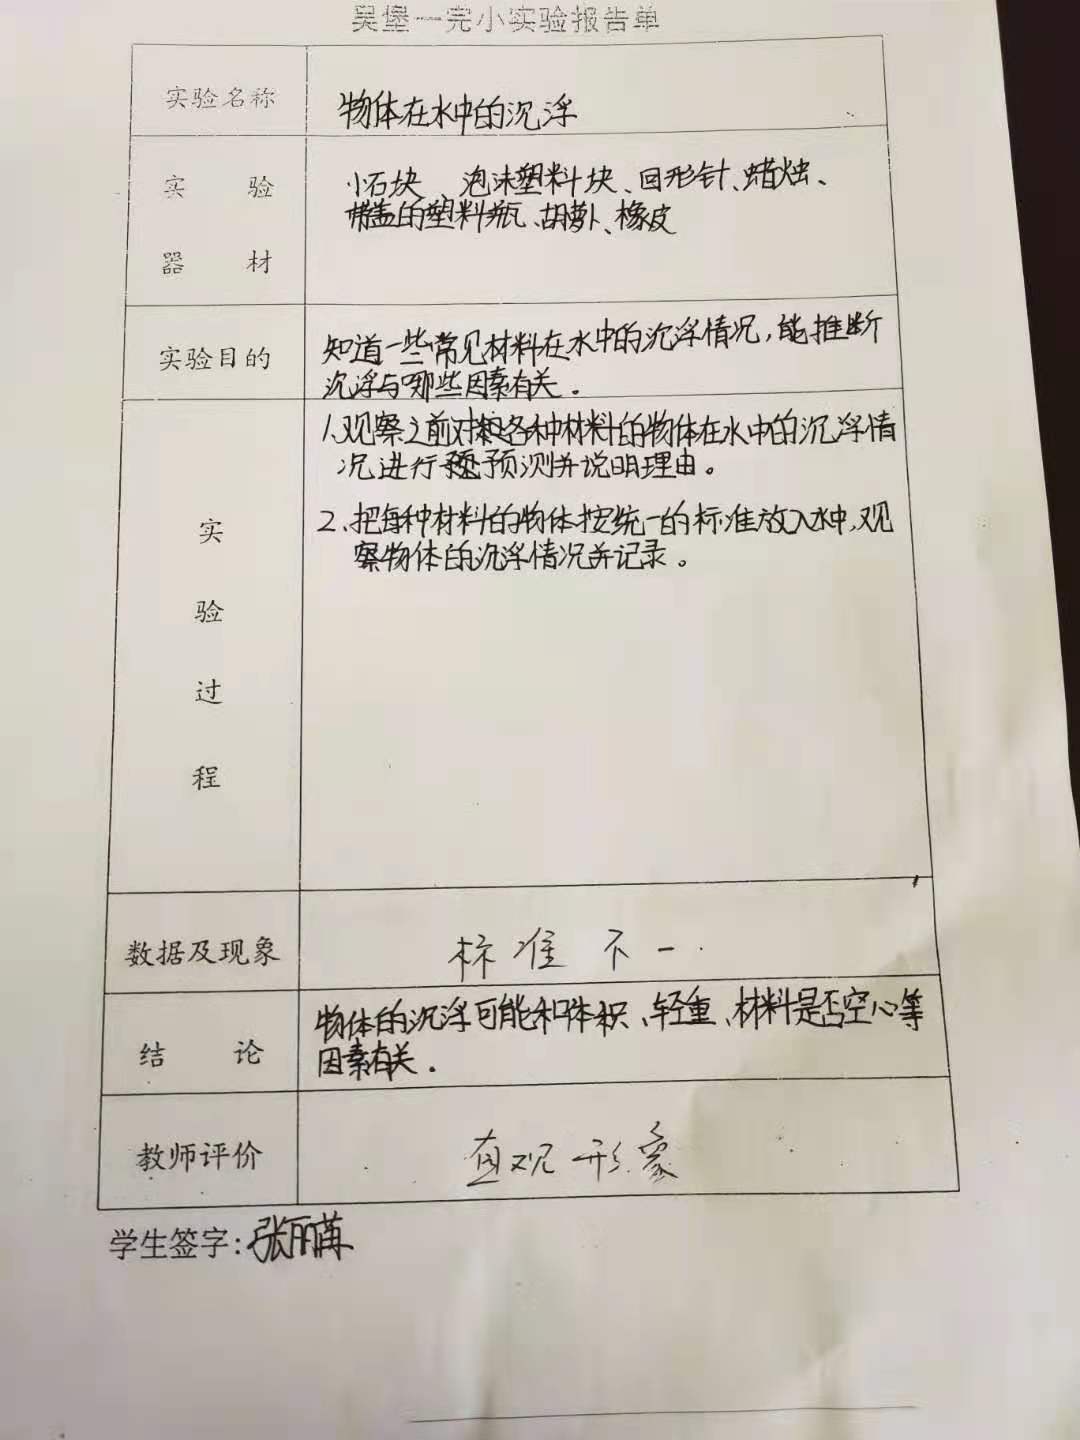 吴堡一完小实验报告单
实验名称
物体在水中的沉浮
实验
器材
小石块、泡沫塑料块、回形针、蜡烛、
带盖的塑料瓶、胡萝卜、橡皮
实验目的
知道一些常见材料在水中的沉浮情况,能推断
沉浮与哪些因素有关。
实验过程
1.观察之前对各种材料的物体在水中的沉浮情
况进行预测并说明理由。
2、把每种材料的物体按统一的标准放入水中,观
察物体的沉浮情况并记录。
数据及现象
标准不一.
结论
物体的沉浮可能和体积、轻重、材料是否空心等
因素有关.
教师评价
直观形象
学生签字:张丽